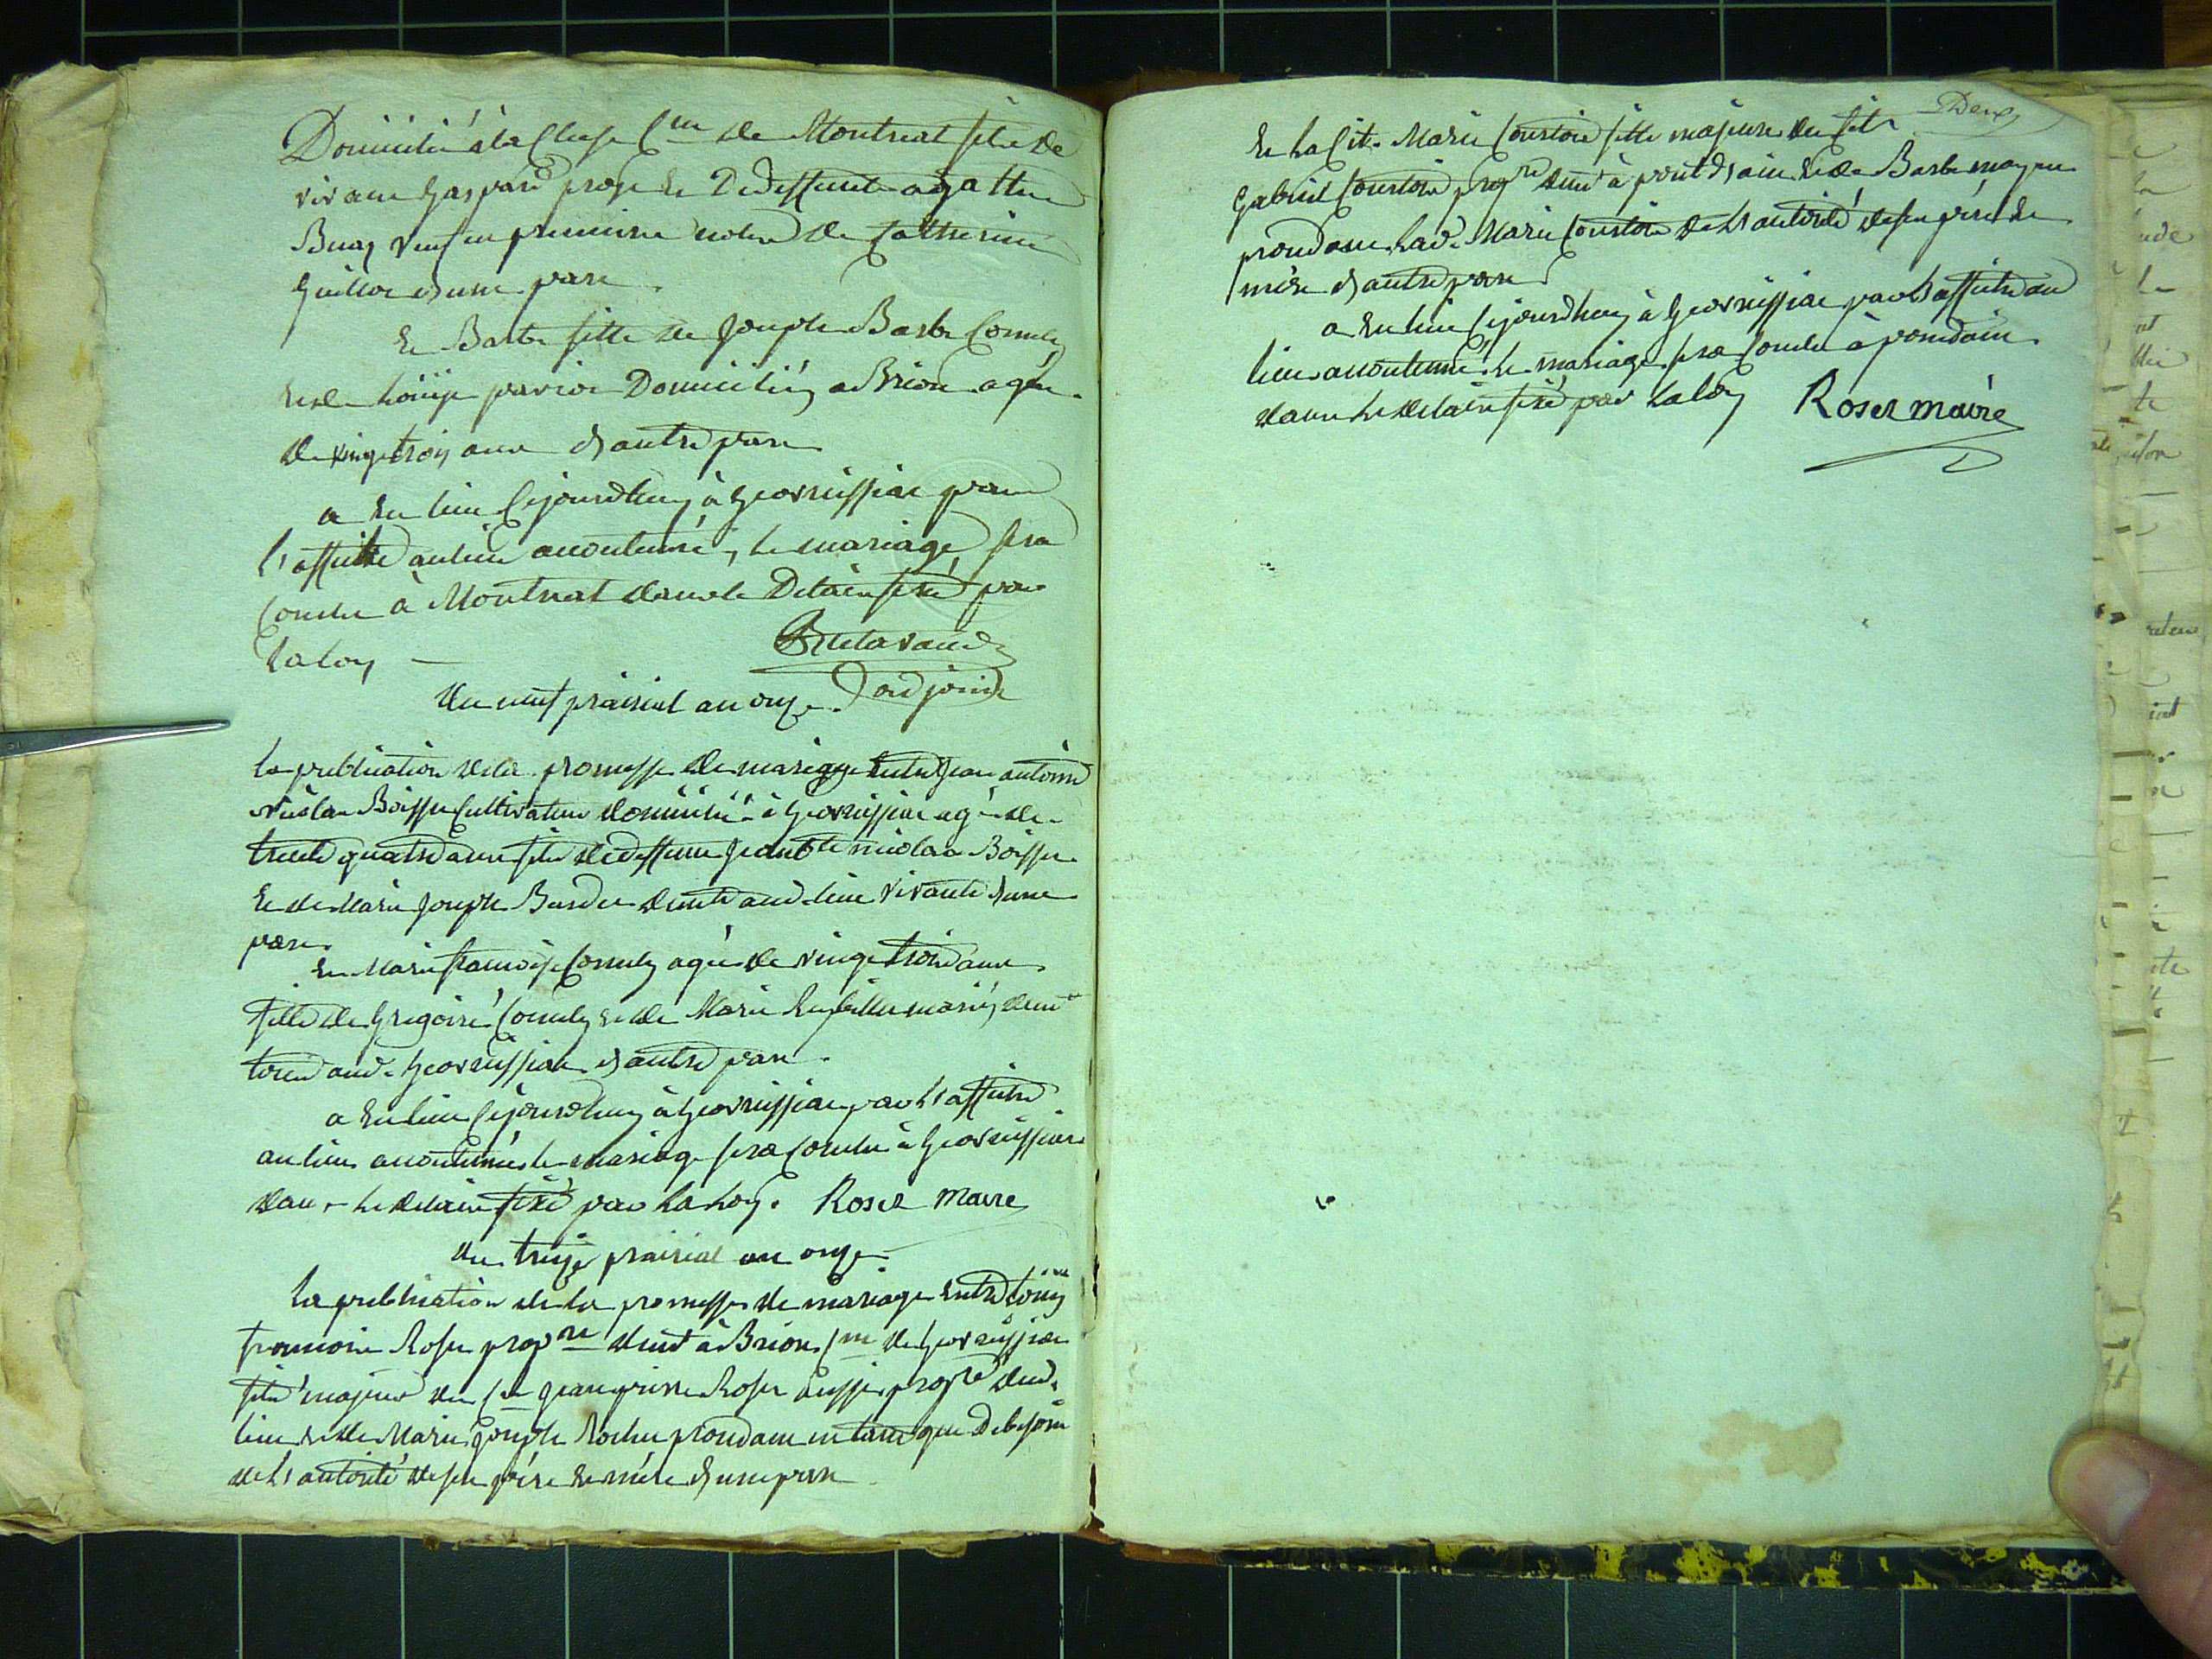 Domicilié à la Cluse Cne de Montreal fils de
vivant Gaspard prop. et De deffunte agathe
Buey veuf en premiere nolce de Catherine
Guillot d'une part
Et Barbe fille de Joseph Barbe Cornuly
et de Louise pavior Domiciliés a Brion agée
de vingt trois ans d'autre part
a eu lieu Cejourdhuy à Geovreissiat par
l'affiche au lieu accoutumé, le mariage sera
Conclu à Montreal dans le Delain fixé par
la loy
adjoint
du neuf prairial an onze.
la publication de la promesse de mariage entre Jean antoine
nicolas Boisson Cultivateur domicilié à Geovreissiat agé de
trente quatre ans fils de deffunt Jean Bte nicolas Boisson
Et de Marie Joseph Burdet demte aud. lieu vivante d'une
part.
Et Marie francoise Cornuly agée de vingt trois ans
fille de Grégoire Cornuly et de Marie mariés demt
tous aud. Geovreissiat d'autre part.
a eu lieu Cejourdhuy à Geovreissiat par l'affiche
au lieu accoutumé, le mariage sera Conclu à Geovreissiat
dans le delain fixé par la Loy. Roset maire
du treize prairial an onze.
La publication de la promesse de mariage entre Louis
francois Roset propre demt à Brion Cne de Geovreissiat
fils majeur du Cen Jean pierre Roset aussi propre dud.
lieu et de Marie Joseph Rochet proudant en tant que De besoin
de l'autorité de ses père et mère d'une part
Deux
Et La Cit. Marie Coursoir fille majeure du Cit.
Gabriel Coursoir propre demt à pont d'ain et de Barbe moyne
proudant lad. Marie Coursoir de l'autorité de ses père et
mère d'autre part
a eu lieu Cejourdhuy à Geovreissiat par l'affiche au
lieu accoutumé, le mariage sera Conclu à pondain
dans le delain fixé par la loy Roset maire